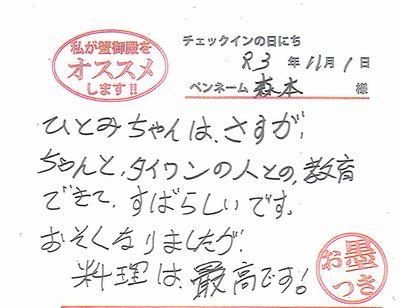 私が蟹御殿を
オススメ
します!!
チェックインの日にち
R3年11月1日
ペンネーム 森本 様
ひとみちゃんは、さすが、
ちゃんと、タイワンの人との、教育
できて、すばらしいです。
おそくなりましたが、
料理は最高です!
お墨
つき